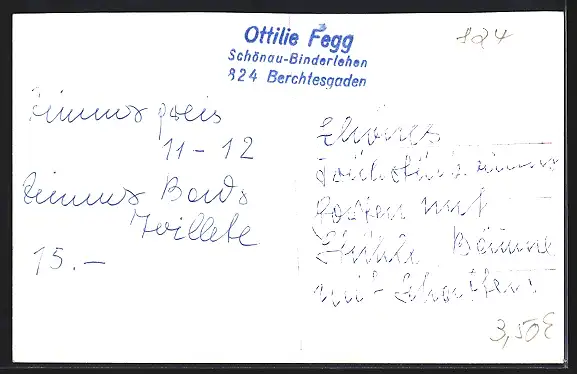 Ottilie Fegg
Schönau-Binderlehen
824 Berchtesgaden
824
Zimmer preis
11 - 12
Zimmer Bad
Toillete
15.-
Schönes
Frühstückszimmer
mit
Stühle Bäume
mit Schatten
3,50€